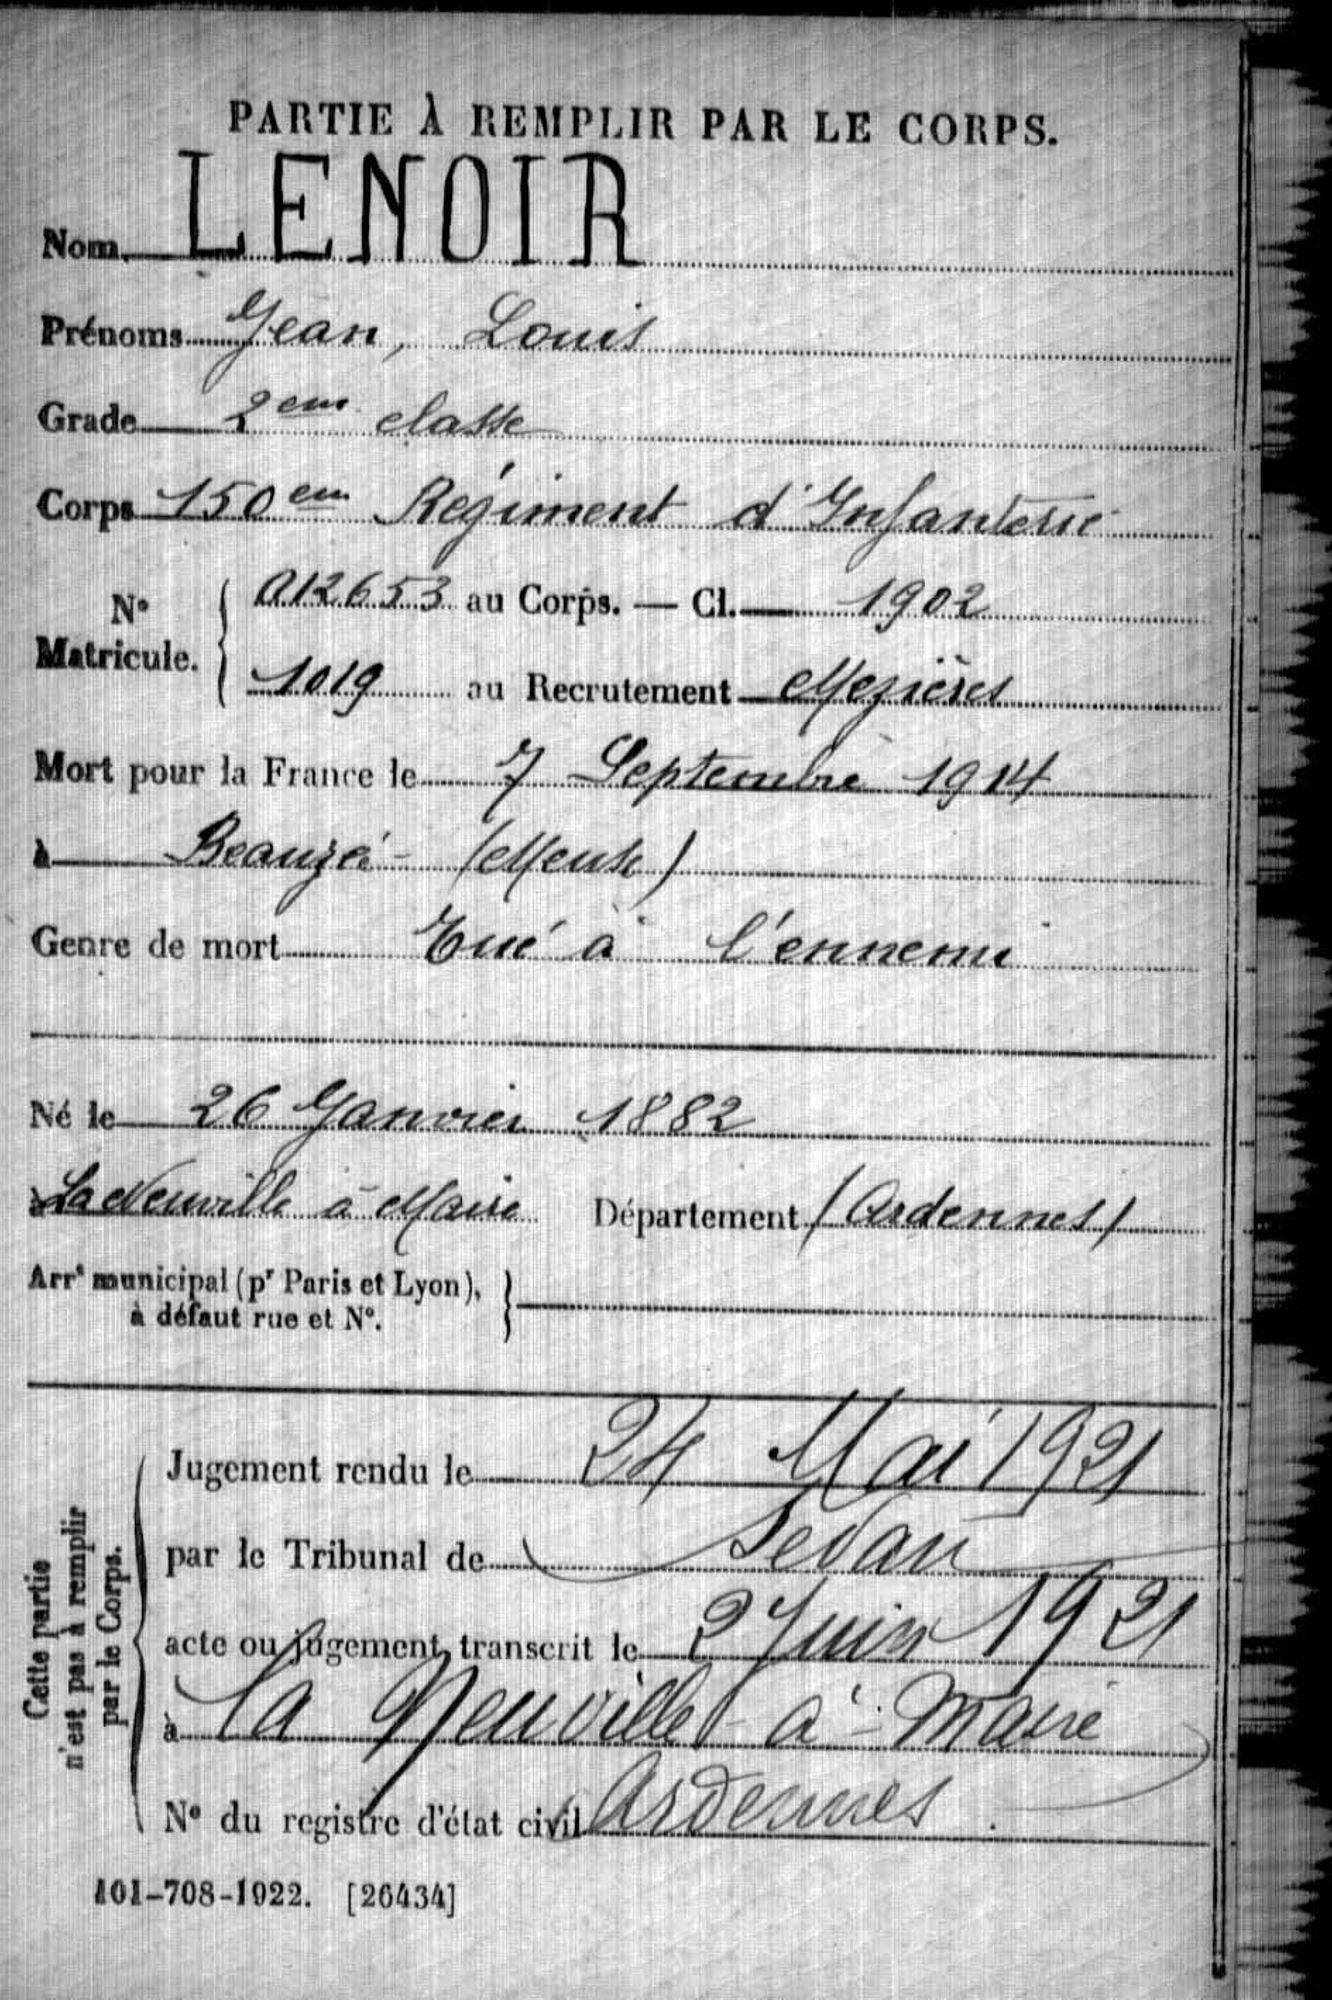 PARTIE À REMPLIR PAR LE CORPS.
Nom LENOIR
Prénoms Jean, Louis
Grade 2eme classe
Corps 150em Régiment d'Infanterie
N° Matricule. { 012653 au Corps. — Cl. 1902
1019 au Recrutement Mezières
Mort pour la France le 7 Septembre 1914
à Beauzée (Meuse)
Genre de mort Tué à l'ennemi
Né le 26 Janvier 1882
à La Neuville à Maire Département (Ardennes)
Arrt municipal (pr Paris et Lyon),
à défaut rue et N°.
Cette partie
n'est pas à remplir
par le Corps.
Jugement rendu le 24 Mai 1921
par le Tribunal de Sedan
acte ou jugement transcrit le 2 Juin 1921
à la Neuville-à-Maire
N° du registre d'état civil Ardennes
101-708-1922. [26434]